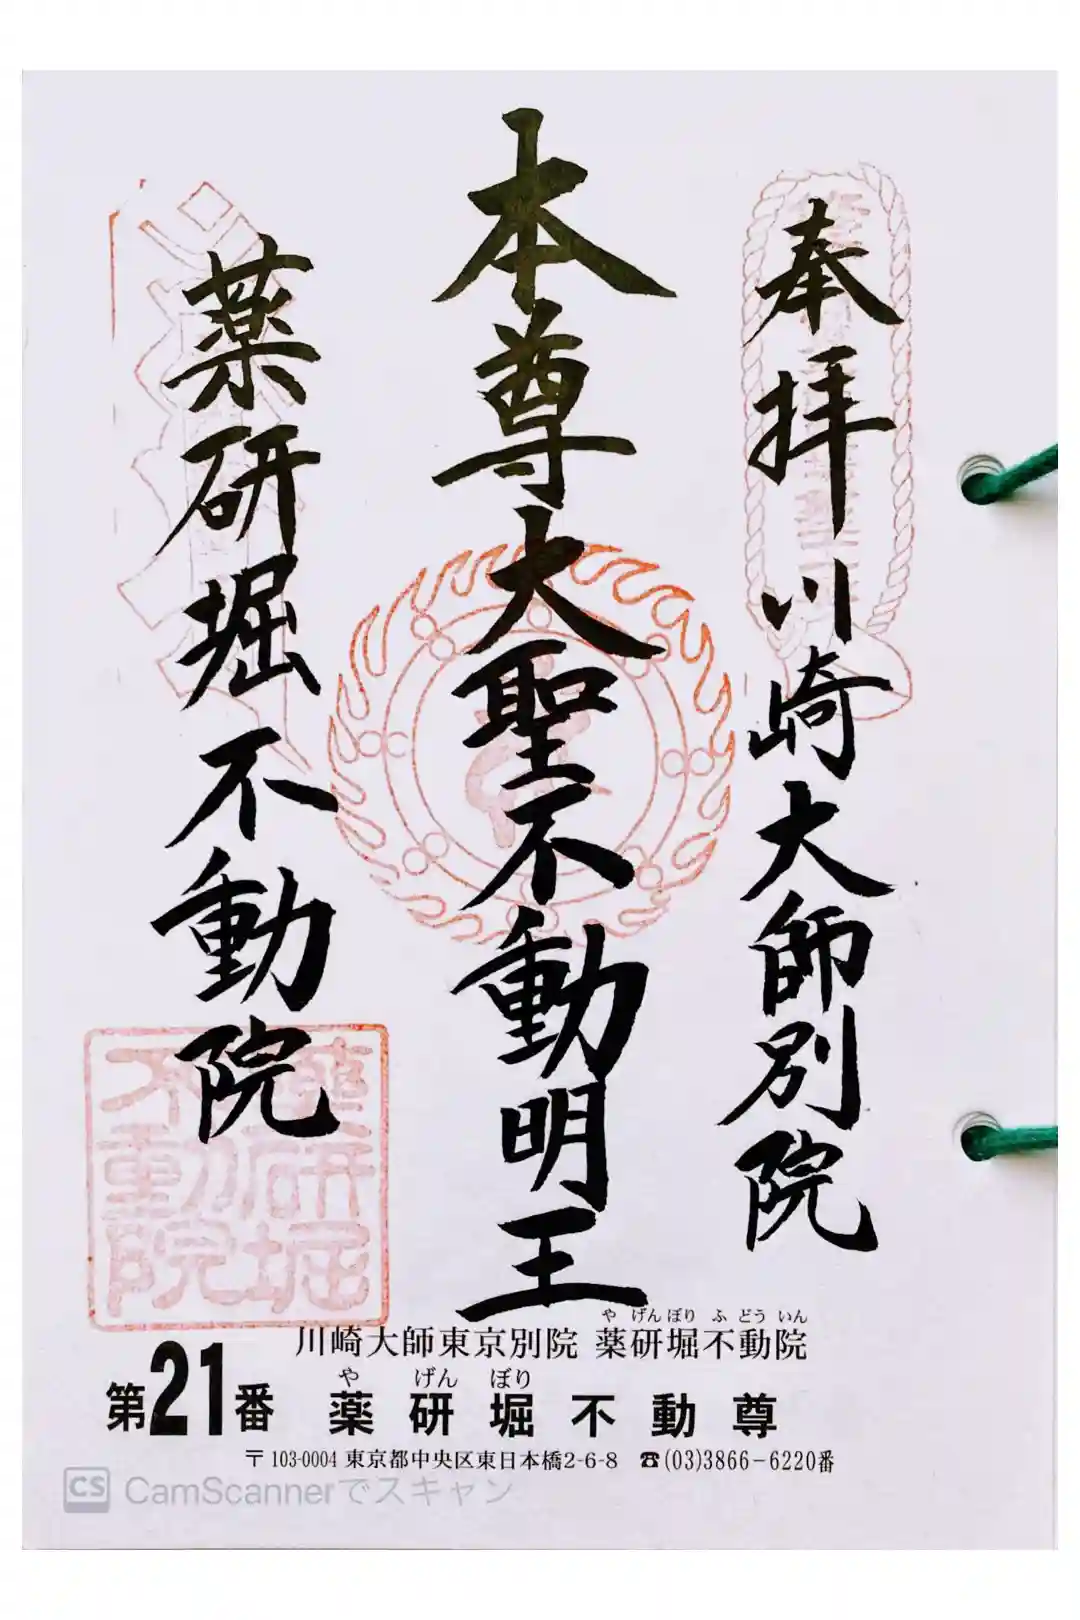 奉拝川崎大師別院
本尊大聖不動明王
薬研堀不動院
薬研堀
不動院
や げんぼり ふ どう いん
川崎大師東京別院 薬研堀不動院
や げん ぼり
第21番 薬研堀不動尊
〒103-0004 東京都中央区東日本橋2-6-8 ☎(03)3866-6220番
CS CamScannerでスキャン